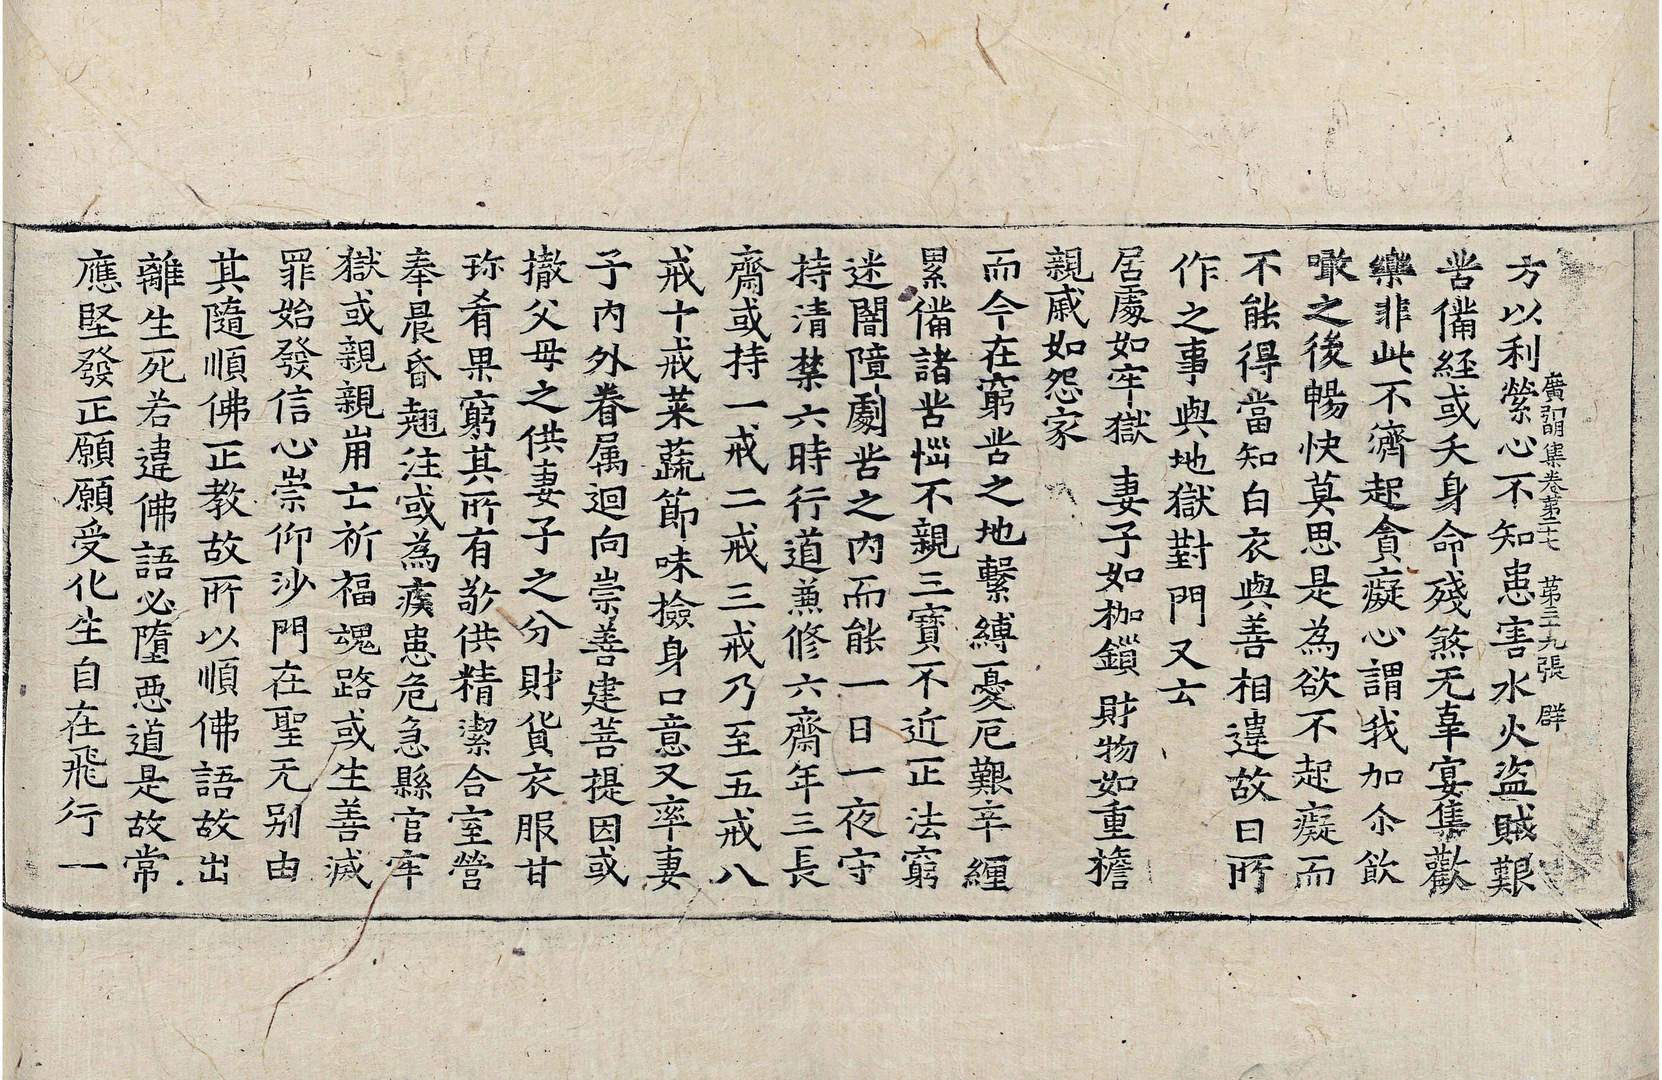 廣弘明集卷第二十七 第三十九張 群
方以利縈心不知患害水火盜賊艱
苦備經或夭身命殘煞无辜宴集歡
樂非此不濟起貪癡心謂我加尒飲
噉之後暢快莫思是為欲不起癡而
不能得當知白衣與善相違故曰所
作之事與地獄對門又云
居處如牢獄 妻子如枷鎖 財物如重檐
親戚如怨家
而今在窮苦之地繫縛憂厄艱辛纏
累備諸苦惱不親三寶不近正法窮
迷闇障劇苦之內而能一日一夜守
持清禁六時行道兼修六齋年三長
齋或持一戒二戒三戒乃至五戒八
戒十戒菜蔬節味撿身口意又率妻
子內外眷属迴向崇善建菩提因或
撤父母之供妻子之分財貨衣服甘
珎肴果窮其所有敬供精潔合室營
奉晨昏翹注或為疾患危急縣官牢
獄或親親崩亡祈福魂路或生善滅
罪始發信心崇仰沙門在聖无別由
其隨順佛正教故所以順佛語故出
離生死若違佛語必墮惡道是故常
應堅發正願願受化生自在飛行一